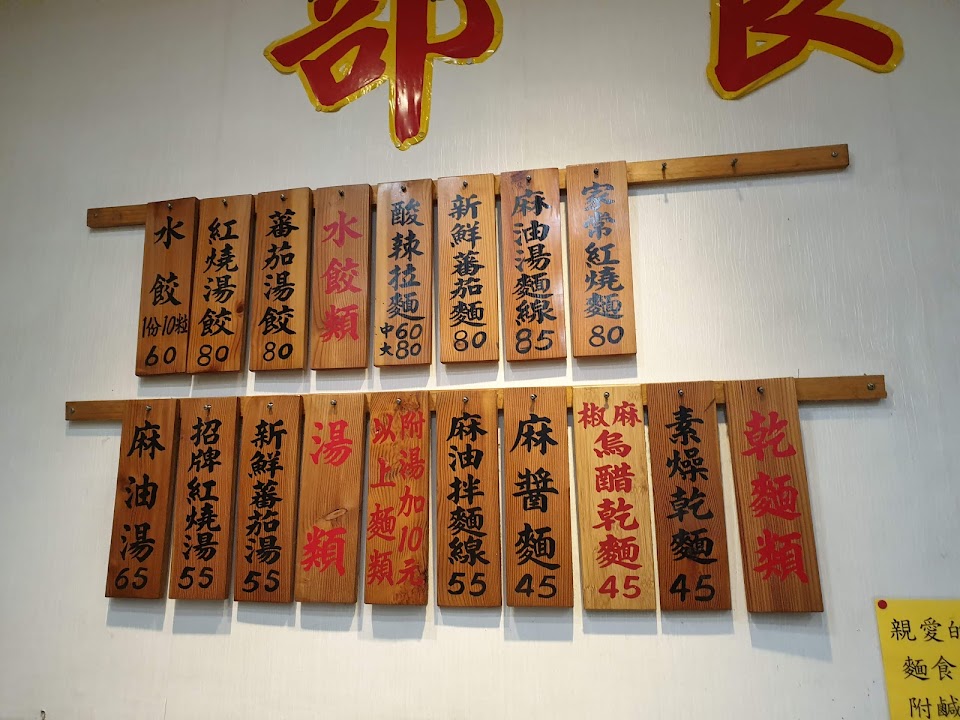 部
家常紅燒麵
80
麻油湯麵線
85
新鮮蕃茄麵
80
酸辣拉麵
中60
大80
水餃類
蕃茄湯餃
80
紅燒湯餃
80
水餃
1份10粒
60
乾麵類
素燥乾麵
45
椒麻
烏醋乾麵
45
麻醬麵
45
麻油拌麵線
55
附湯加10元
以上麵類
湯類
新鮮蕃茄湯
55
招牌紅燒湯
55
麻油湯
65
親愛的
麵食
附鹹